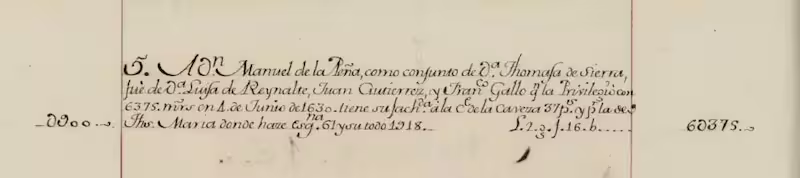 5. A Dⁿ. Manuel de la Peña, como conjunto de Dª. Thomasa de Sierra,
fué de Dª. Luisa de Reynalte, Juan Gutierrez, y Franᶜᵒ Gallo y la Privilegio con
6375. mrs en 4. de Junio de 1630. tiene su fachᵈᵃ. à la Cᵉ. de la Caveza 37 pˢ. y pʳ. la de
Jhs. Maria donde haze esqⁿᵃ. 61 y su todo 1918.
D900
6D375